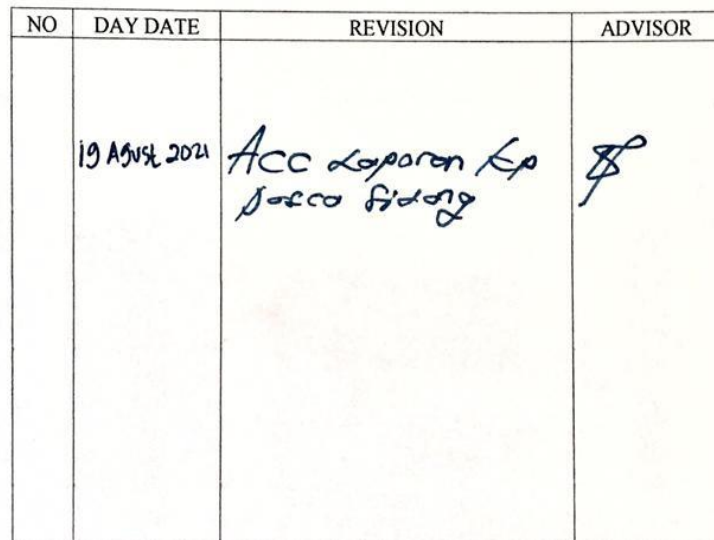 NO DAY DATE REVISION ADVISOR
19 Agust 2021 Acc Laporan Kp
pasca Sidang